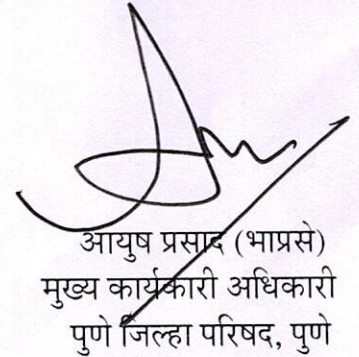 आयुष प्रसाद (भाप्रसे)
मुख्य कार्यकारी अधिकारी
पुणे जिल्हा परिषद, पुणे